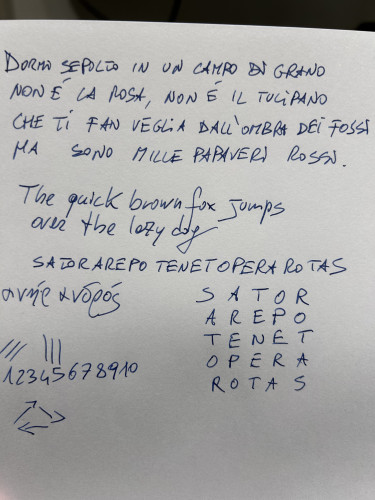 DORMO SEPOLTO IN UN CAMPO DI GRANO
NON È LA ROSA, NON È IL TULIPANO
CHE TI FAN VEGLIA DALL'OMBRA DEI FOSSI
MA SONO MILLE PAPAVERI ROSSI.
The quick brown fox jumps
over the lazy dog
SATORAREPOTENETOPERAROTAS
ανήρ ανδρός
S A T O R
A R E P O
T E N E T
O P E R A
R O T A S
/// |||
12345678910